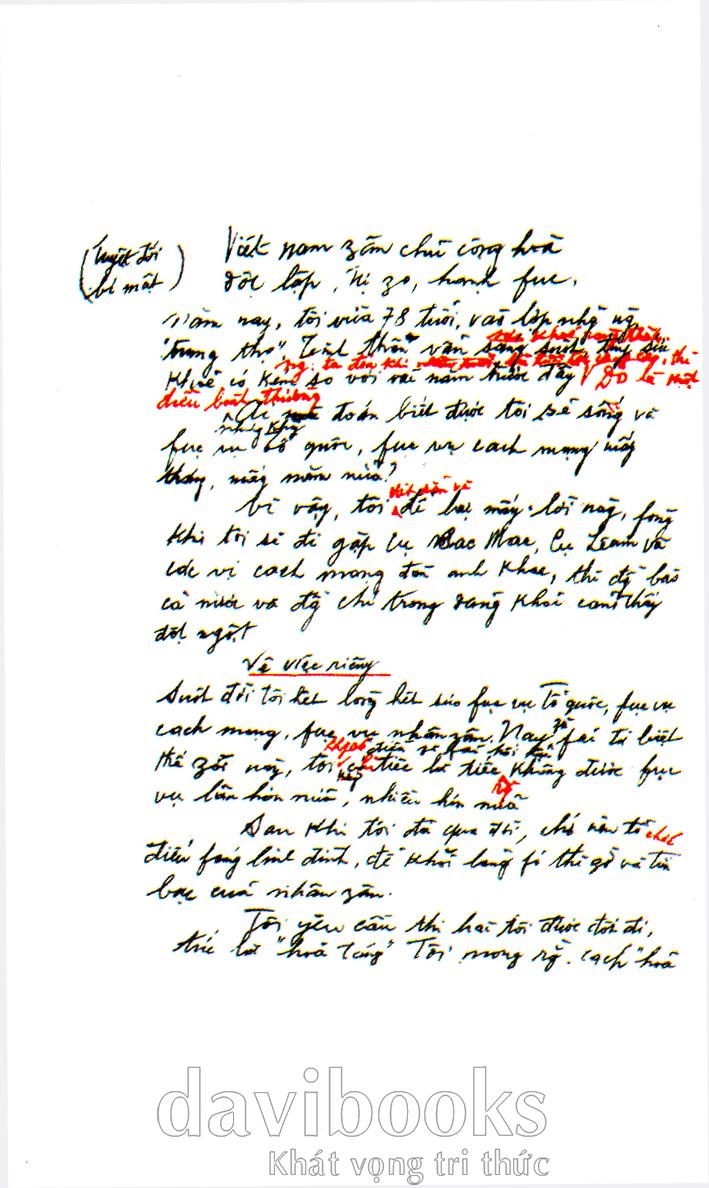 (Tuyệt đối
bí mật)
Việt nam zân chủ cộng hoà
độc lập, tự zo, hạnh fúc.
Năm nay, tôi vừa 78 tuổi, vào lớp những ng
"trung thọ". Tinh thần vẫn sáng suốt, tuy sức
khoẻ có kém so với vài năm trước đây. Đó là một
điều bình thường
Ai mà đoán biết được tôi sẽ sống và
fục vụ tổ quốc, fục vụ cách mạng mấy
tháng, mấy năm nữa?
Vì vậy, tôi để lại mấy lời này, fòng
khi tôi sẽ đi gặp cụ Các Mác, cụ Lênin và
các vị cách mạng đàn anh khác, thì đ bào
cả nước và đ chí trong đảng khỏi cảm thấy
đột ngột
Về việc riêng
Suốt đời tôi hết lòng hết sức fục vụ Tổ quốc, fục vụ
cách mạng, fục vụ nhân zân. Nay zù fải từ biệt
thế zới này, tôi không có điều gì fải hối hận
chỉ tiếc là tiếc không được fục
vụ lâu hơn nữa, nhiều hơn nữa
Sau khi tôi đã qua đời, chớ nên tổ chức
điếu fúng linh đình, để khỏi lãng fí thì giờ và tiền
bạc của nhân zân.
Tôi yêu cầu thi hài tôi được đốt đi,
tức là "hoả táng" Tôi mong rằ. cách "hoả
davibooks
Khát vọng tri thức